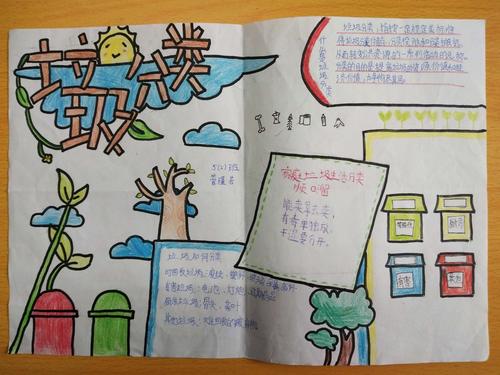 垃圾分类
什么是垃圾分类
垃圾分类，指按一定规定或标准
将垃圾分类储存、分类投放和分类搬运
从而转变成公共资源的一系列活动的总称。
分类的目的是提高垃圾的资源价值和经
济价值，力争物尽其用
5(2)班
家庭垃圾生活分类
顺口溜
能卖拿去卖，
有毒单独放，
干湿要分开。
垃圾如何分类
可回收垃圾：
有害垃圾：电池、灯泡、过期药品
厨余垃圾：骨头、菜叶
其他垃圾：
有害
其他